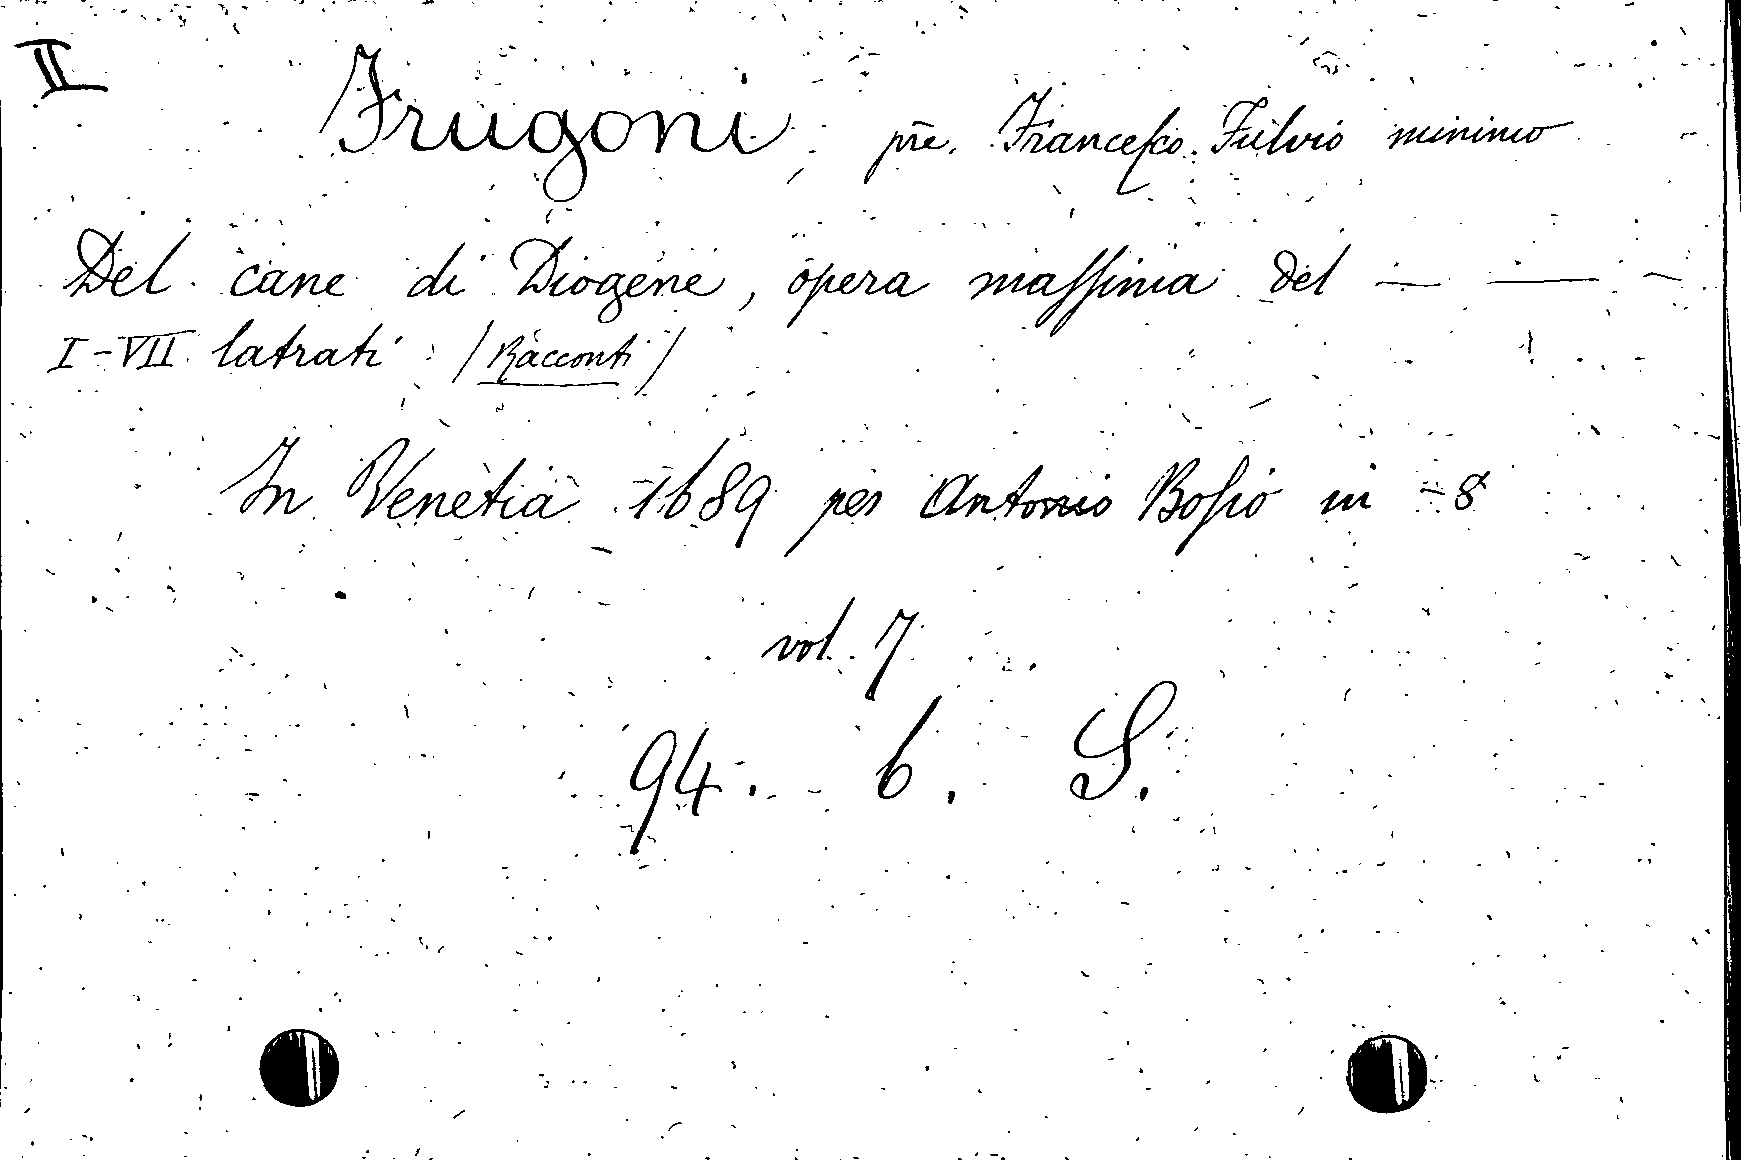 II
Frugoni, pre. Franceſco Fulvio minimo
Del cane di Diogene, opera maſſima del — — —
I-VII latrati /Racconti/
In Venetia 1689 per Antonio Boſio in -8
vol. 7
94. b. S.